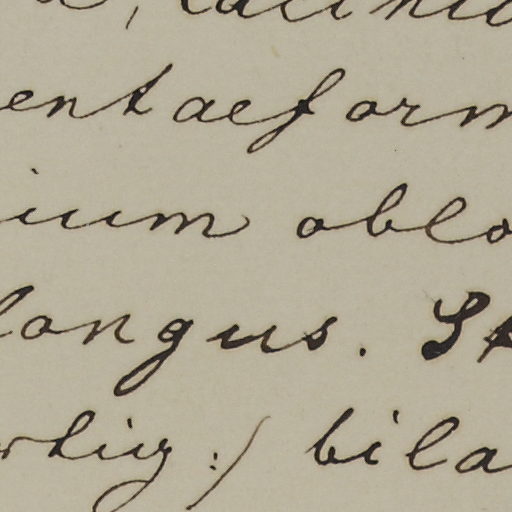 entaeform
ium oblo
longus. St
rtig :/ bila